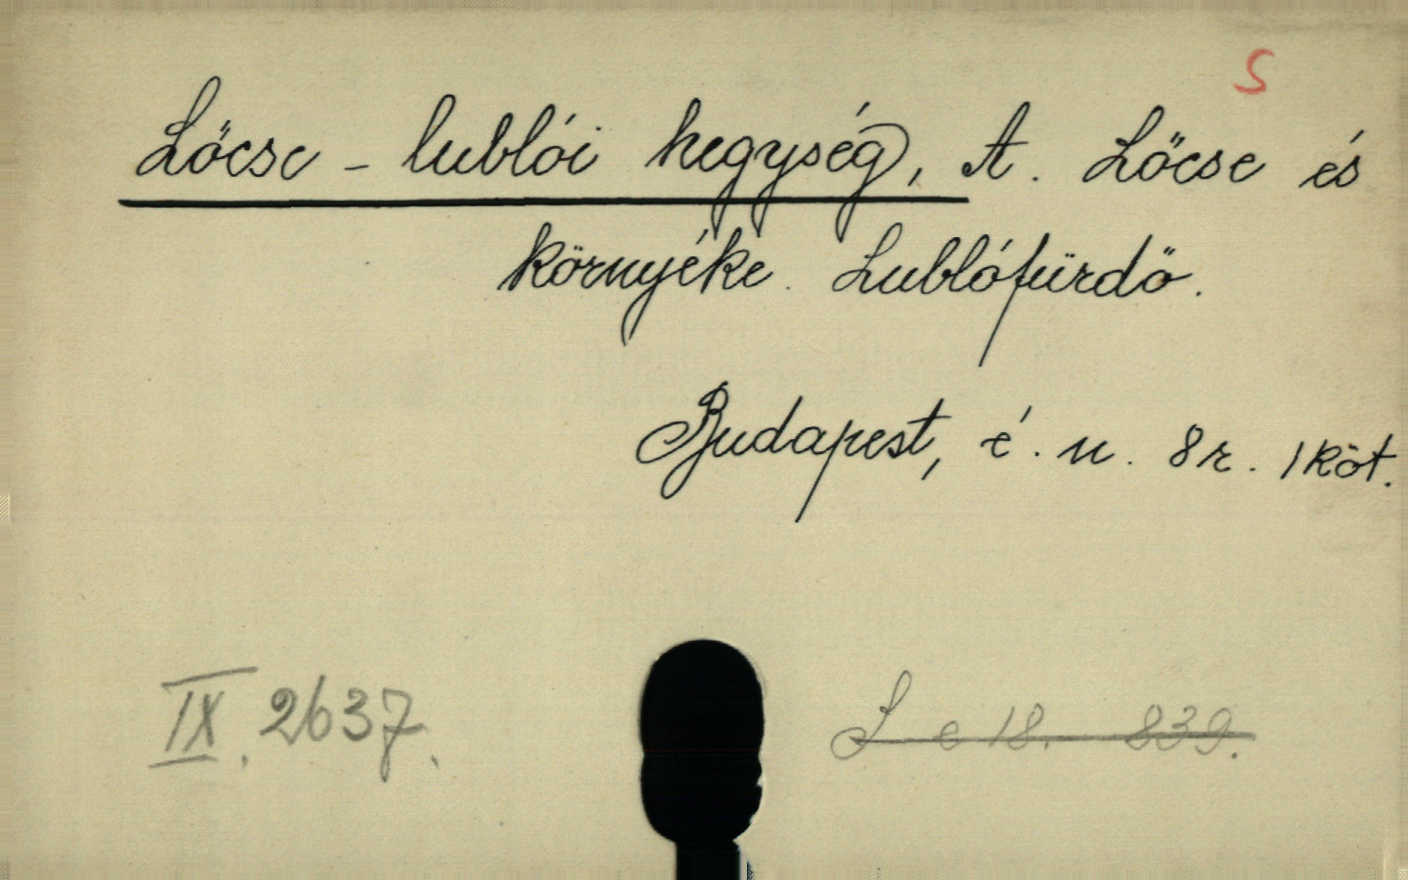 S
Lőcse - lublói hegység, A. Lőcse és
környéke. Lublófürdő.
Budapest, é. n. 8r. 1 köt.
IX. 2637.
L e 18. 839.